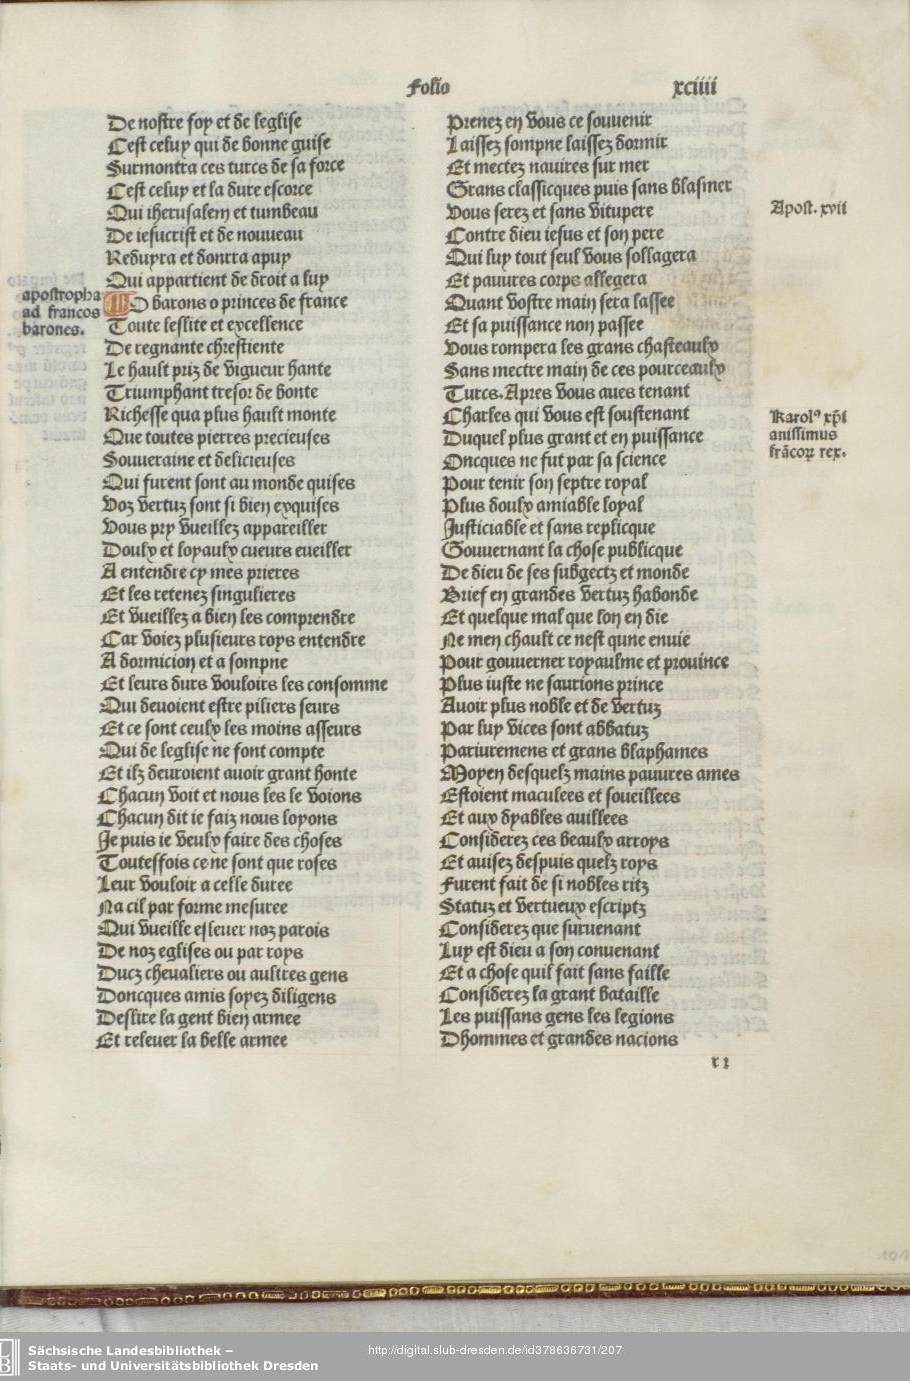 Folio xciiii
De nostre foy et de leglise
Cest celuy qui de bonne guise
Surmontra ces turcs de sa force
Cest celuy et la dure escorce
Qui iherusalem et tumbeau
De iesucrist et de nouueau
Reduyra et donrra apuy
Qui appartient de droit a luy
apostropha
ad francos
barones.
O barons o princes de france
Toute leslite et excellence
De regnante chrestiente
Le hault priz de vigueur hante
Triumphant tresor de bonte
Richesse qua plus hault monte
Que toutes pierres precieuses
Souueraine et delicieuses
Qui furent sont au monde quises
Voz vertuz sont si bien exquises
Vous pry vueillez appareiller
Doulx et loyaulx cueurs eueiller
A entendre cy mes prieres
Et les retenez singulieres
Et vueillez a bien les comprendre
Car voiez plusieurs roys entendre
A dormicion et a sompne
Et leurs durs vouloirs les consomme
Qui deuoient estre piliers seurs
Et ce sont ceulx les moins asseurs
Qui de leglise ne font compte
Et ilz deuroient auoir grant honte
Chacun voit et nous les le voions
Chacun dit ie faiz nous loyons
Je puis ie veulx faire des choses
Toutesfois ce ne sont que roses
Leur vouloir a celle duree
Na cil par forme mesuree
Qui vueille esleuer noz parois
De noz eglises ou par roys
Ducz chevaliers ou aultres gens
Doncques amis soyez diligens
Deslire la gent bien armee
Et releuer la belle armee
Prenez en vous ce souuenir
Laissez sompne laissez dormir
Et mectez nauires sur mer
Grans classicques puis sans blasmer
Vous serez et sans vitupere
Apost. xvii
Contre dieu iesus et son pere
Qui luy tout seul vous sollagera
Et pauures corps allegera
Quant vostre main sera lassee
Et sa puissance non passee
Vous rompera les grans chasteaulx
Sans mectre main de ces pourceaulx
Turcs. Apres vous aues tenant
Charles qui vous est soustenant
Karolꝰ xp̄i
anissimus
frācoꝝ rex.
Duquel plus grant et en puissance
Oncques ne fut par sa science
Pour tenir son septre royal
Plus doulx amiable loyal
Justiciable et sans replicque
Gouuernant la chose publicque
De dieu de ses subgectz et monde
Brief en grandes vertuz habonde
Et quelque mal que lon en die
Ne men chault ce nest qune enuie
Pour gouuerner royaulme et prouince
Plus iuste ne saurions prince
Auoir plus noble et de vertuz
Par luy vices sont abbatuz
Pariuremens et grans blaphames
Moyen desquelz mains pauures ames
Estoient maculees et soueillees
Et aux dyables auillees
Considerez ces beaulx arroys
Et auisez despuis quelz roys
Furent fait de si nobles ritz
Statuz et vertueux escriptz
Considerez que suruenant
Luy est dieu a son conuenant
Et a chose quil fait sans faille
Considerez la grant bataille
Les puissans gens les legions
Dhommes et grandes nacions
r 1
101
Sächsische Landesbibliothek –
Staats- und Universitätsbibliothek Dresden
http://digital.slub-dresden.de/id378636731/207